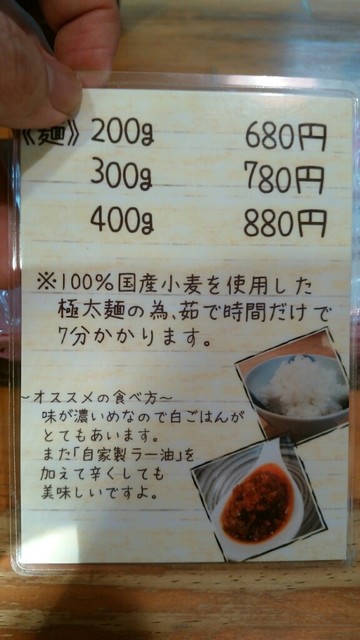 《麺》 200g 680円
300g 780円
400g 880円
※100%国産小麦を使用した
極太麺の為、茹で時間だけで
7分かかります。
~オススメの食べ方~
味が濃いめなので白ごはんが
とてもあいます。
また「自家製ラー油」を
加えて辛くしても
美味しいですよ。